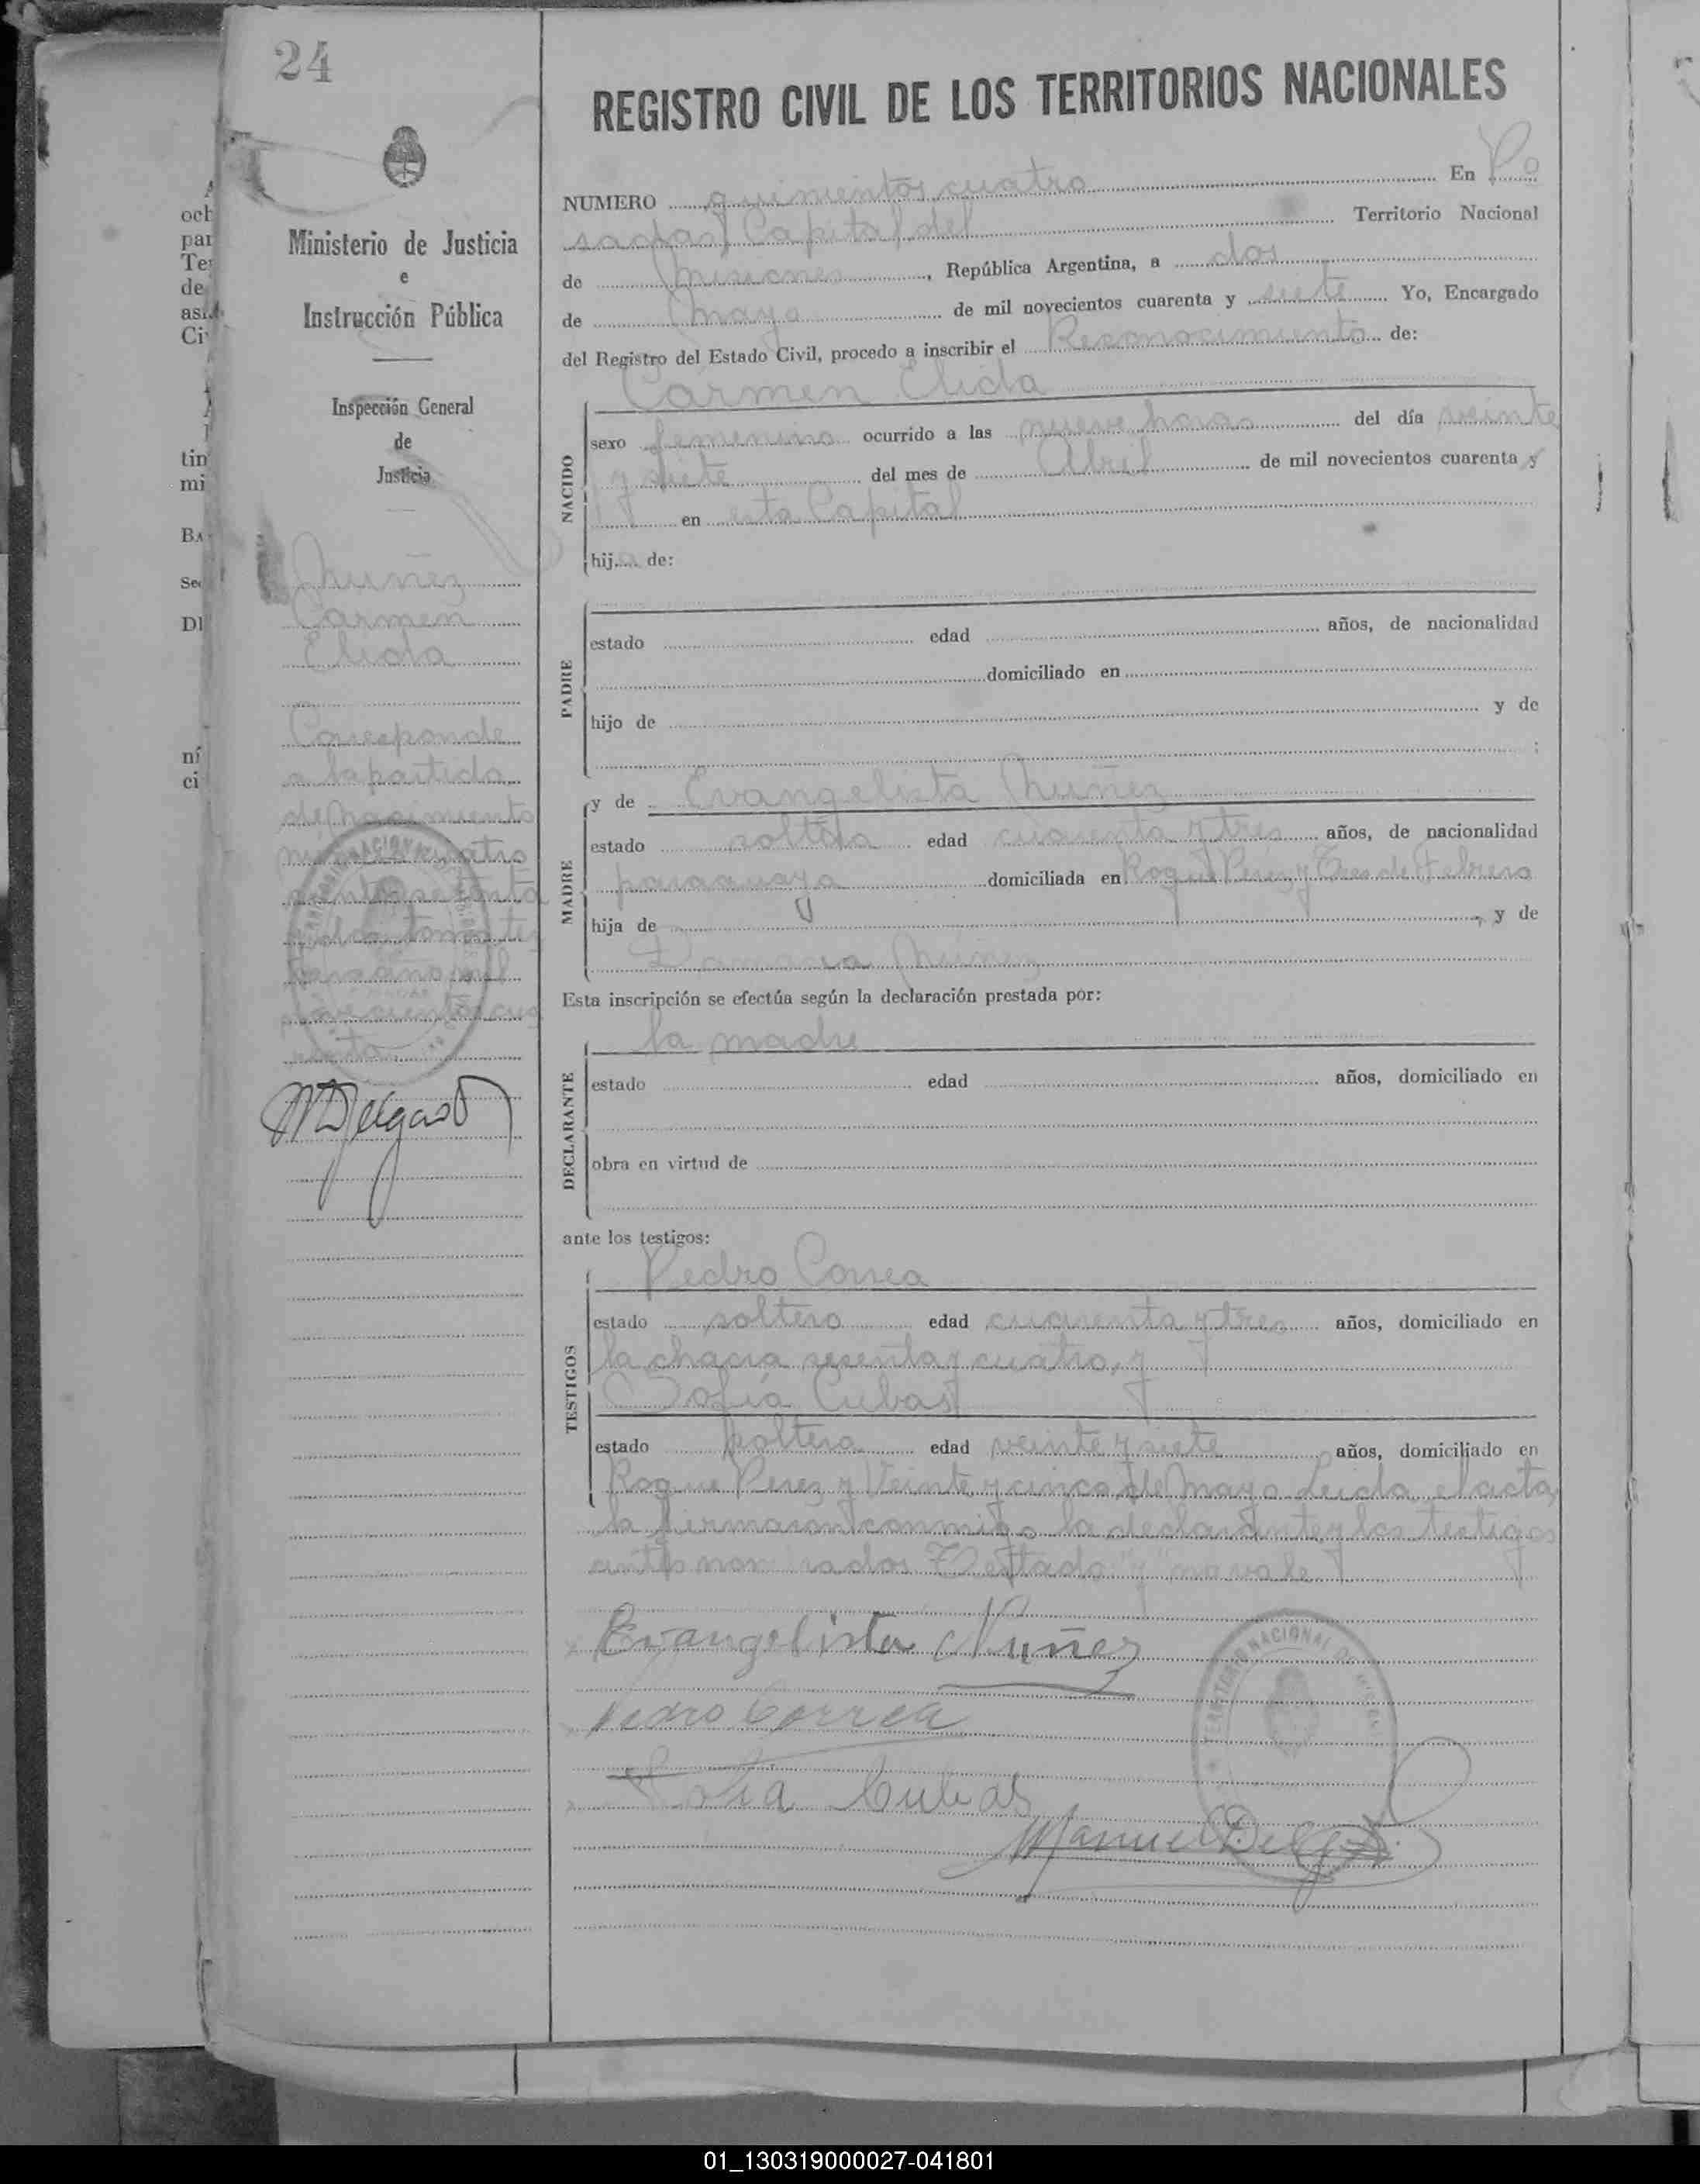 24
REGISTRO CIVIL DE LOS TERRITORIOS NACIONALES
Ministerio de Justicia
e
Instrucción Pública
Inspección General
de
Justicia
Nuñez
Carmen
Elida
Corresponde
a la partida
de nacimiento
M Delgado
NUMERO quinientos cuatro En Po
sadas Capital del Territorio Nacional
de Misiones, República Argentina, a dos
de Mayo de mil novecientos cuarenta y siete Yo, Encargado
del Registro del Estado Civil, procedo a inscribir el Reconocimiento de:
Carmen Elida
NACIDO
sexo femenino ocurrido a las nueve horas del día veinte
y siete del mes de Abril de mil novecientos cuarenta y
en esta Capital
hija de:
PADRE
estado edad años, de nacionalidad
domiciliado en
hijo de y de
MADRE
y de Evangelista Nuñez
estado soltera edad cuarenta y tres años, de nacionalidad
paraguaya domiciliada en Roque Perez y Tres de Febrero
hija de , y de
Nuñez
Esta inscripción se efectúa según la declaración prestada por:
la madre
DECLARANTE
estado edad años, domiciliado en
obra en virtud de
ante los testigos:
TESTIGOS
Pedro Correa
estado soltero edad cuarenta y tres años, domiciliado en
la chacra sesenta y cuatro, y
Sofía Cubas
estado soltera edad veinte y siete años, domiciliado en
Roque Perez y Veinte y cinco de Mayo Leida el acta
la firmaron conmigo la declarante y los testigos
antes nombrados Testado "y" no vale
Evangelista Nuñez
Pedro Correa
Sofia Cubas
Manuel Delgado
TERRITORIO NACIONAL DE
och
par
Te
de
as
Ci
tin
mi
BA
Se
DI
ni
ci
01_130319000027-041801